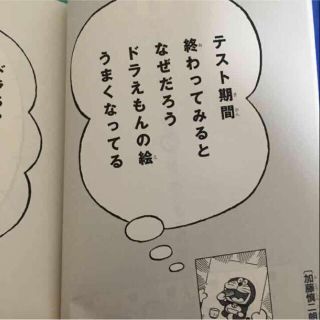 テスト期間
終わってみると
なぜだろう
ドラえもんの絵
うまくなってる